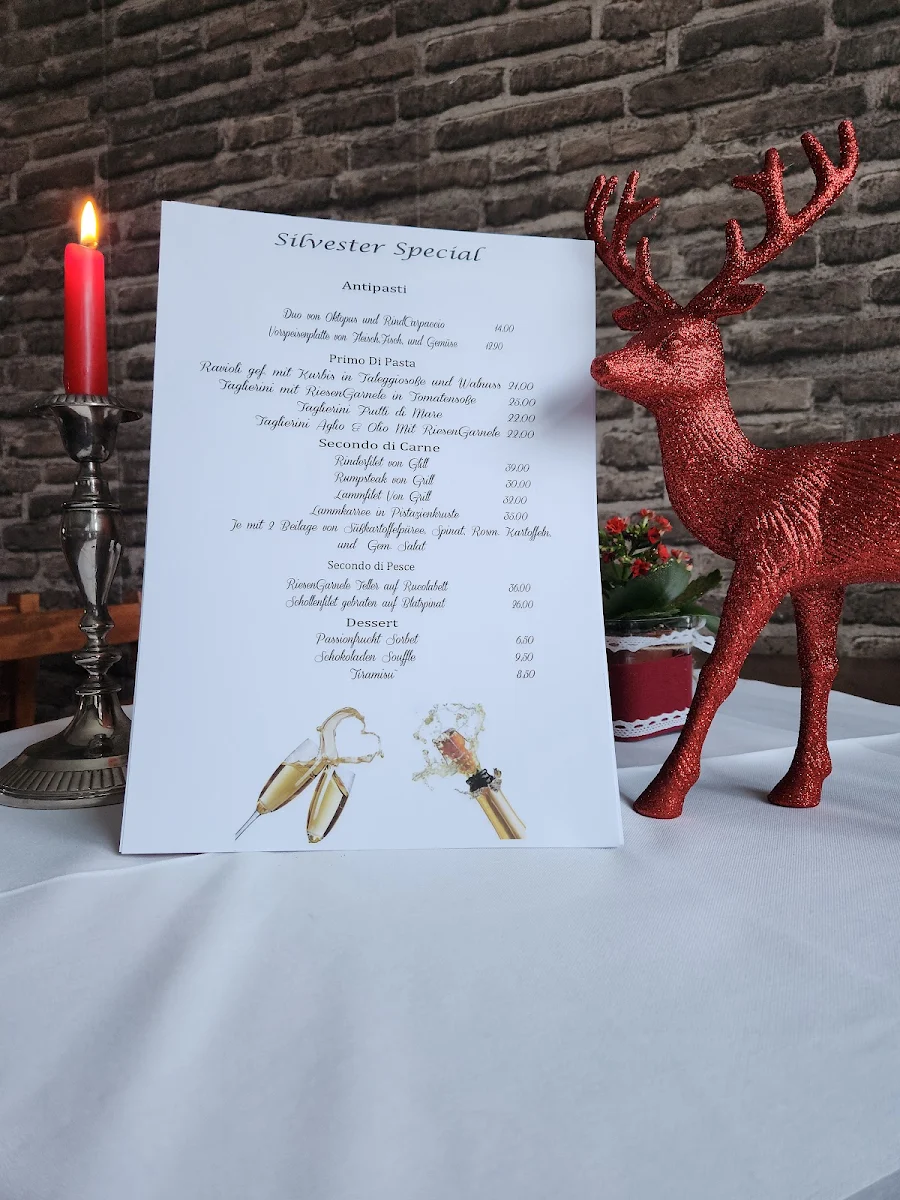 Silvester Special
Antipasti
Duo von Oktopus und RindCarpaccio 14.00
Vorspeisenplatte von Fleisch,Fisch, und Gemüse 17.90
Primo Di Pasta
Ravioli gef mit Kurbis in Taleggiosoße und Walnuss 21.00
Taglierini mit RiesenGarnele in Tomatensoße 25.00
Taglierini Frutti di Mare 22.00
Taglierini Aglio & Olio Mit RiesenGarnele 22.00
Secondo di Carne
Rinderfilet von Grill 39.00
Rumpsteak von Grill 30.00
Lammfilet Von Grill 32.00
Lammkarree in Pistazienkruste 35.00
Je mit 2 Beilage von Süßkartoffelpüree, Spinat, Rosm. Kartoffeln,
und Gem Salat
Secondo di Pesce
RiesenGarnele Teller auf Rucolabett 36.00
Schollenfilet gebraten auf Blatspinat 26.00
Dessert
Passionfrucht Sorbet 6,50
Schokoladen Souffle 9,50
Tiramisu` 8,50